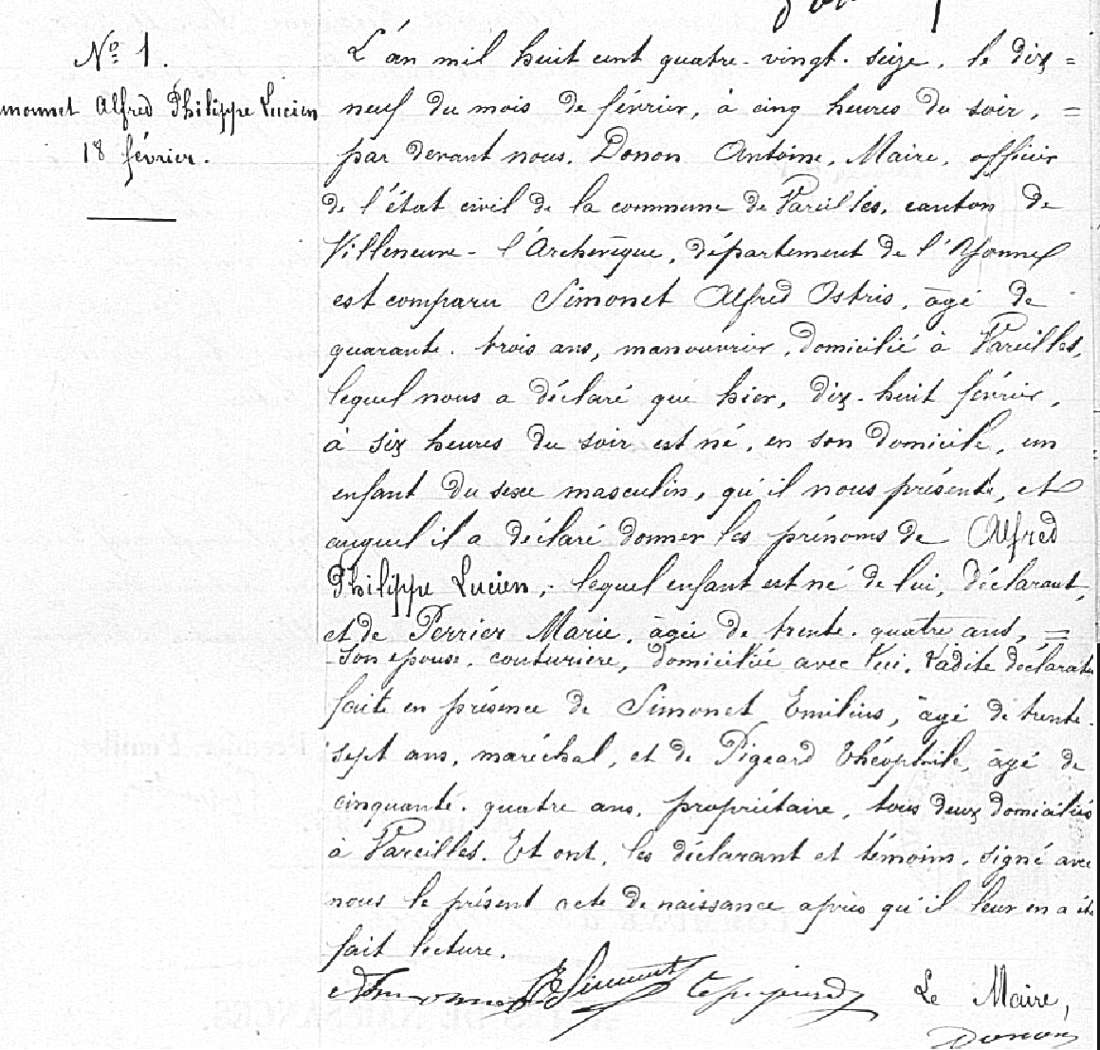 Nº 1.
Alfred Philippe Lucien
18 février.
L'an mil huit cent quatre-vingt-seize, le dix =
neuf du mois de février, à cinq heures du soir, =
par devant nous, Donon Antoine, Maire, officier
de l'état civil de la commune de Vareilles, canton de
Villeneuve-l'Archevêque, département de l'Yonne
est comparu Simonet Alfred Ostris, âgé de
quarante-trois ans, manouvrier, domicilié à Vareilles,
lequel nous a déclaré que hier, dix-huit février,
à six heures du soir est né, en son domicile, un
enfant du sexe masculin, qu'il nous présente, et
auquel il a déclaré donner les prénoms de Alfred
Philippe Lucien, lequel enfant est né de lui, déclarant,
et de Perrier Marie, âgée de trente-quatre ans, =
son épouse, couturière, domiciliée avec lui. Ladite déclarat
faite en présence de Simonet Emilius, âgé de trente-
sept ans, maréchal, et de Pigeard Théophile, âgé de
cinquante-quatre ans, propriétaire, tous deux domiciliés
à Vareilles. Et ont, les déclarant et témoins, signé avec
nous le présent acte de naissance après qu'il leur en a été
fait lecture.
E Simonet Le Maire,
Donon